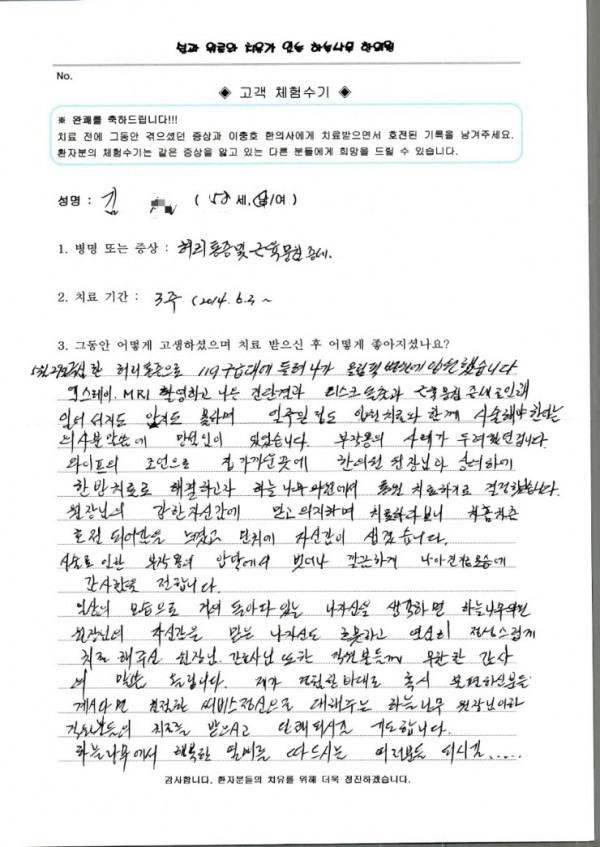 No.
◈ 고객 체험수기 ◈
※ 완쾌를 축하드립니다!!!
치료 전에 그동안 겪으셨던 증상과 이충호 한의사에게 치료받으면서 호전된 기록을 남겨주세요.
환자분의 체험수기는 같은 증상을 앓고 있는 다른 분들에게 희망을 드릴 수 있습니다.
성명 : 김 ( 52 세, 남/여 )
1. 병명 또는 증상 : 허리통증및 근육뭉침 증세.
2. 치료 기간 : 3주 (2014. 6. 3 ~
3. 그동안 어떻게 고생하셨으며 치료 받으신 후 어떻게 좋아지셨나요?
한 허리통증으로 119 구급대에 들려나가 입원했습니다
엑스레이. MRI 촬영하고 나온 진단결과 디스크 돌출과 근육뭉침 증세로인해
서지도 앉지도 못하며 일주일정도 입원치료와 함께 시술해야한다는
의사분 말씀에 있었습니다. 부작용의 사례가 두려웠던겁니다
와이프의 조언으로 집 가까운곳에 한의원 원장님과 상의하에
한방치료로 해결하고자 하늘나무의원에서 통원 치료하기로 결정했습니다.
원장님의 강한자신감에 믿고의지하며 치료하다보니 차츰차츰
호전 되어감을 느꼈고 완치에 자신감이 생겼습니다.
시술로 인한 부작용의 압박에서 벗어나 깔끔하게 나아진모습에
감사함을 전합니다.
일상의 모습으로 거의 돌아와있는 나자신을 생각하면 하늘나무의원
원장님의 자신감을 믿은 나자신도 흐뭇하고 열심히 정성스럽게
치료해주신 원장님. 간호사님 또한 직원분들께 무한한 감사
의 말씀 드립니다. 제가 경험한바대로 혹시 불편하신분들
계시다면 친절한 써비스정신으로 대해주는 하늘나무 원장님이하
직원분들의 치료를 받으시고 완쾌되시길 기도합니다.
하늘나무에서 행복한 열매를 따드시는 여러분들 되시길.....
감사합니다. 환자분들의 치유를 위해 더욱 정진하겠습니다.